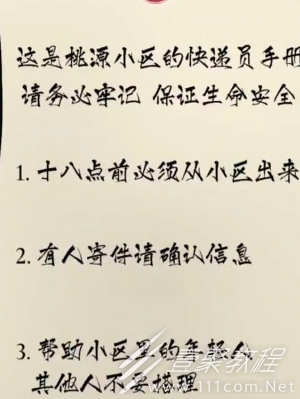 这是桃源小区的快递员手册
请务必牢记 保证生命安全
1. 十八点前必须从小区出来
2. 有人寄件请确认信息
3. 帮助小区里的年轻人
其他人不要搭理
壹聚教程
www.111com.Net